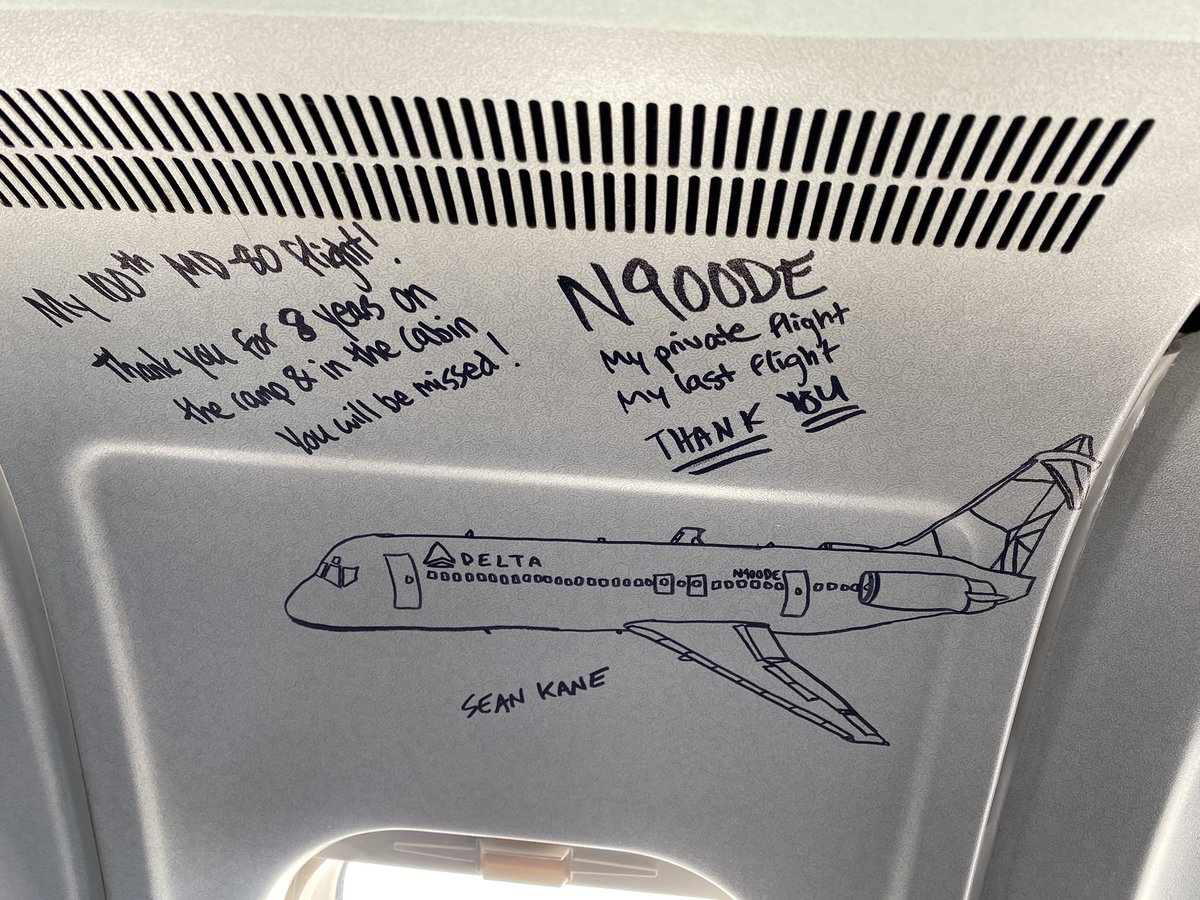 My 100th MD-80 flight!
Thank you for 8 years on
the ramp & in the cabin
You will be missed!
N900DE
My private flight
My last flight
THANK YOU
DELTA
N900DE
SEAN KANE